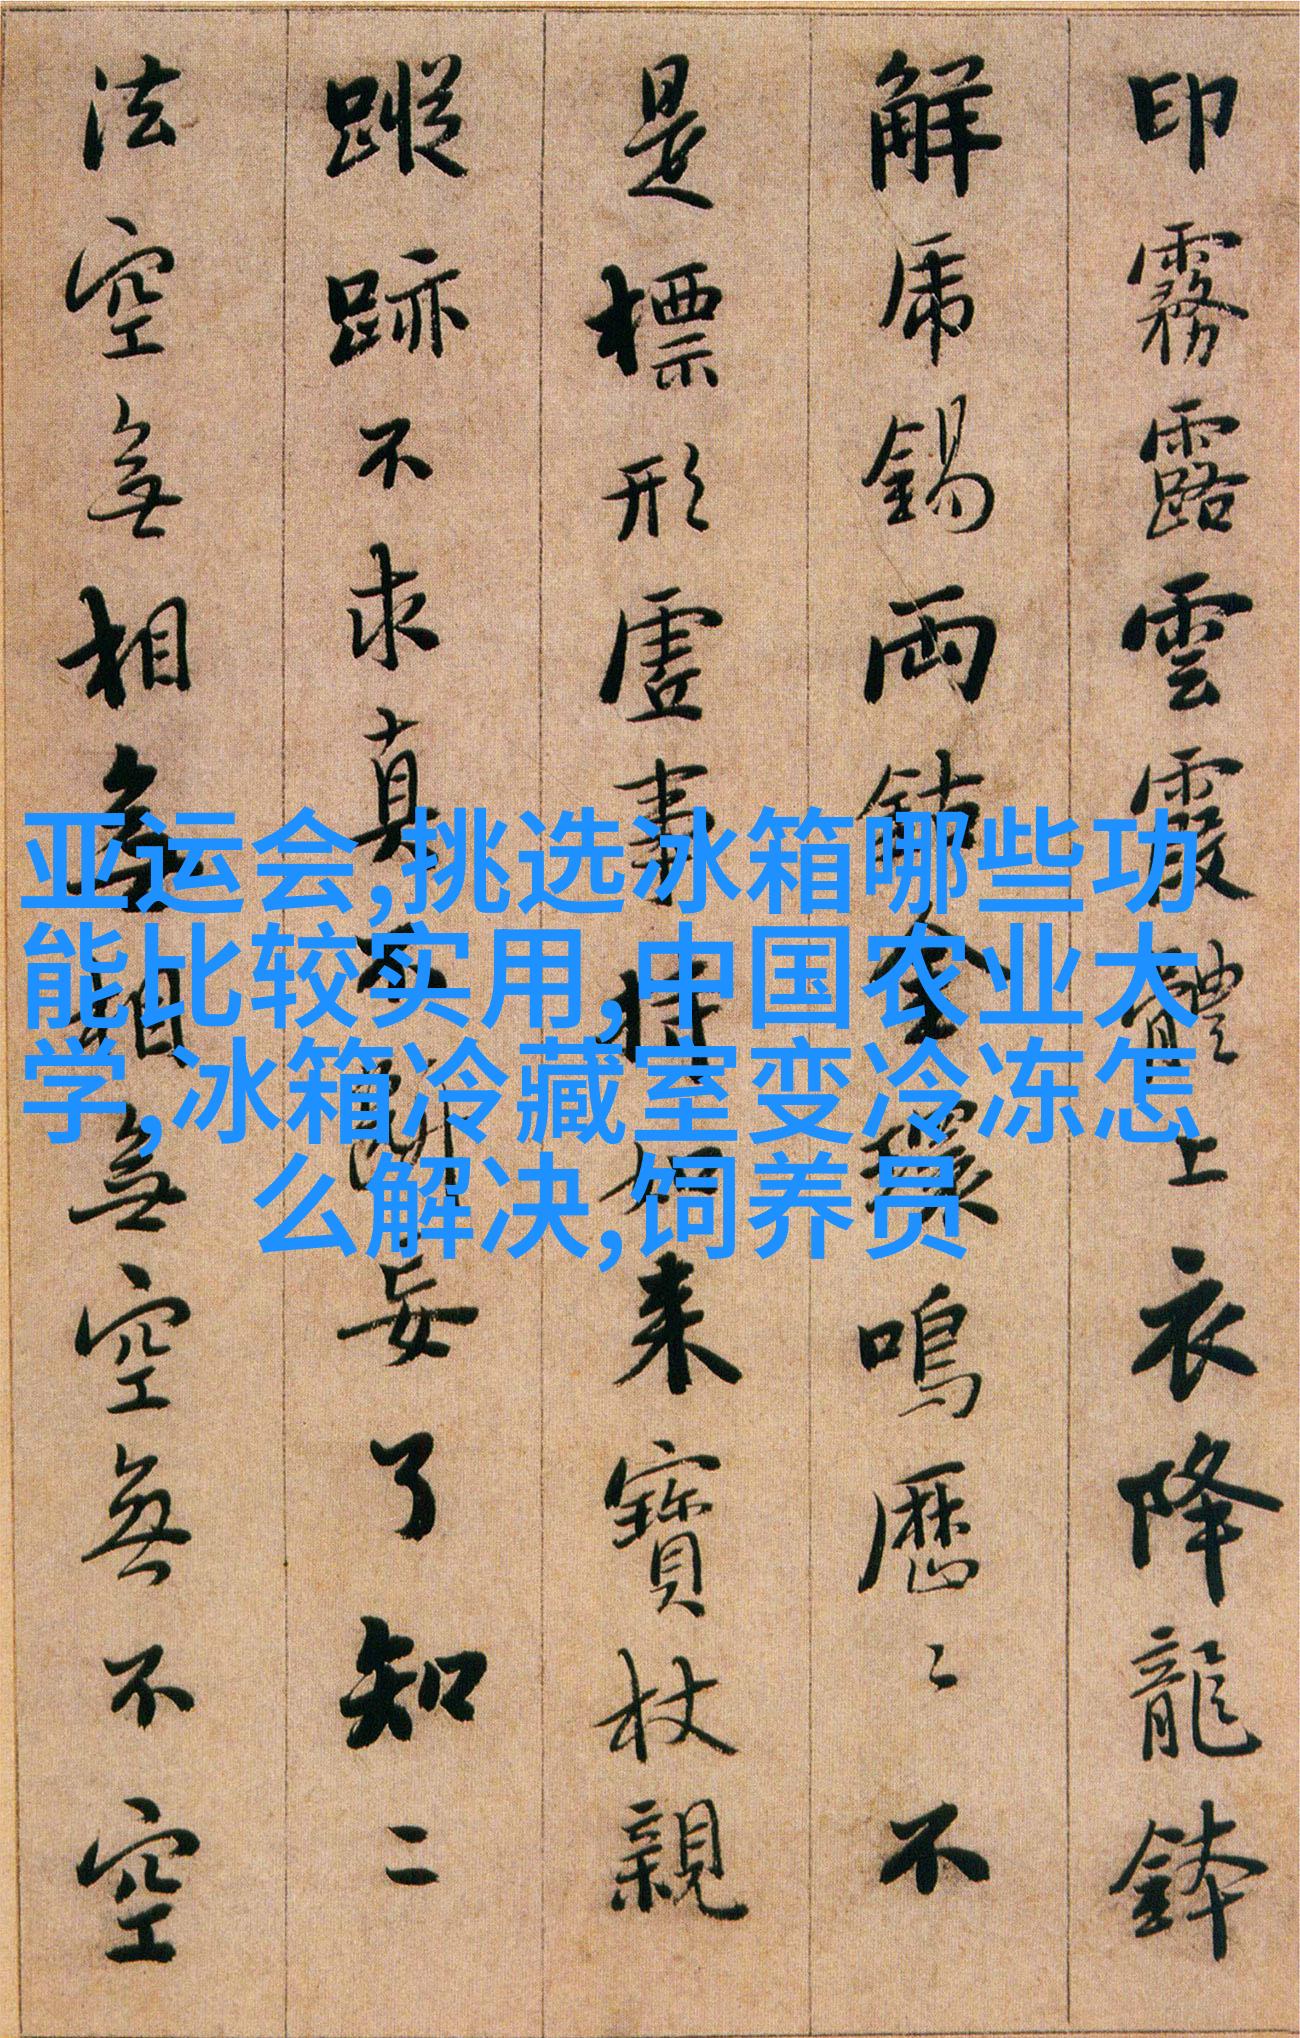 印霧露雲霞體上衣降龍鉢
解虎錫兩鈷金環鳴歷々不
是標形虛事持如来寶杖親
蹤跡不求真不斷妄了知二
法空無相無相無空無不空
亚运会,挑选冰箱哪些功
能比较实用,中国农业大
学,冰箱冷藏室变冷冻怎
么解决,饲养员